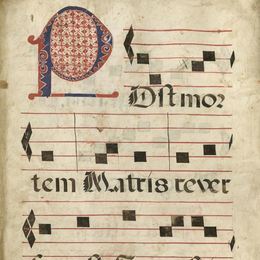 Post mor
tem Matris rever